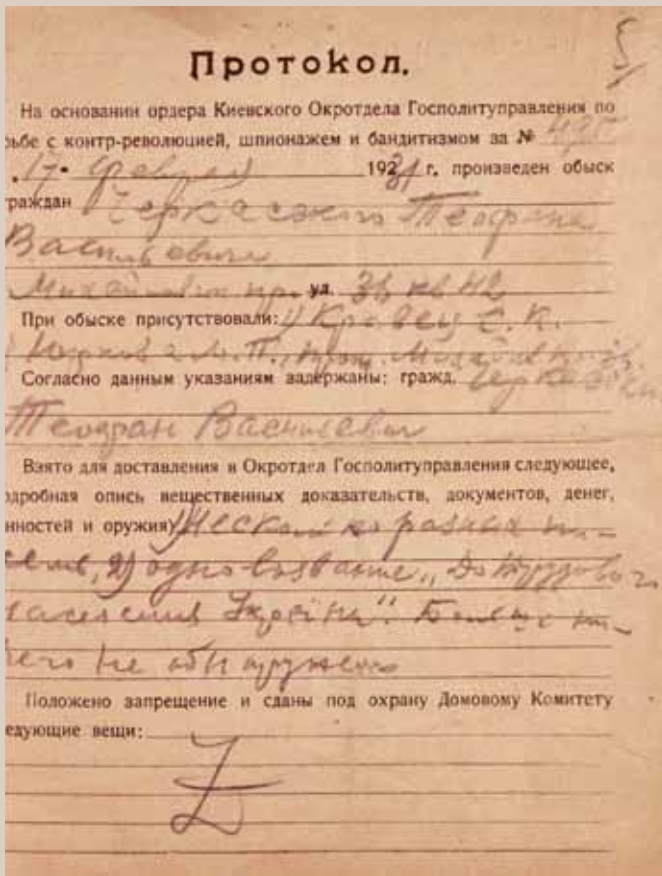 5
Протокол.
На основании ордера Киевского Окротдела Госполитуправления по
рьбе с контр-революцией, шпионажем и бандитизмом за №
17 февраля 1931 г. произведен обыск
раждан Черкасского Теофана
Васильевича
ул. 36 кв 42
При обыске присутствовали: 1) Кравец С. К.
М. П.,
Согласно данным указаниям задержаны: гражд. Черкасский
Теофан Васильевич
Взято для доставления в Окротдел Госполитуправления следующее,
одробная опись вещественных доказательств, документов, денег,
нностей и оружия) 1) Несколько разных пи-
сем, 2) одно воззвание „До трудового
населення Україны". Больше ни-
чего не обнаружено
Положено запрещение и сданы под охрану Домовому Комитету
едующие вещи:
Z